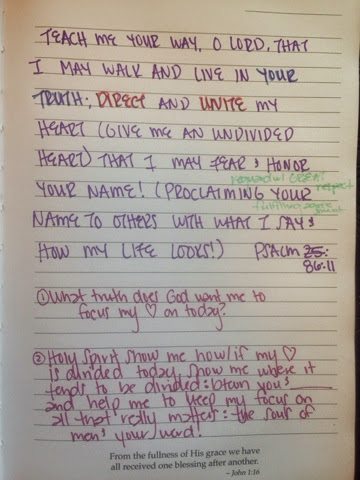 TEACH ME YOUR WAY, O LORD, THAT
I MAY WALK AND LIVE IN YOUR
TRUTH; DIRECT AND UNITE MY
HEART (GIVE ME AN UNDIVIDED
HEART) THAT I MAY FEAR & HONOR
GREAT respect
YOUR NAME! (PROCLAIMING YOUR
NAME TO OTHERS WITH WHAT I SAY &
HOW MY LIFE LOOKS!) PSALM 25:
86:11
① What truth does God want me to
focus my ♡ on today?
② Holy Spirit show me how/if my ♡
is divided today, show me where it
tends to be divided: btwn you & ____
and help me to keep my focus on
all that really matters: the souls of
men & your word!
From the fullness of His grace we have
all received one blessing after another.
– John 1:16